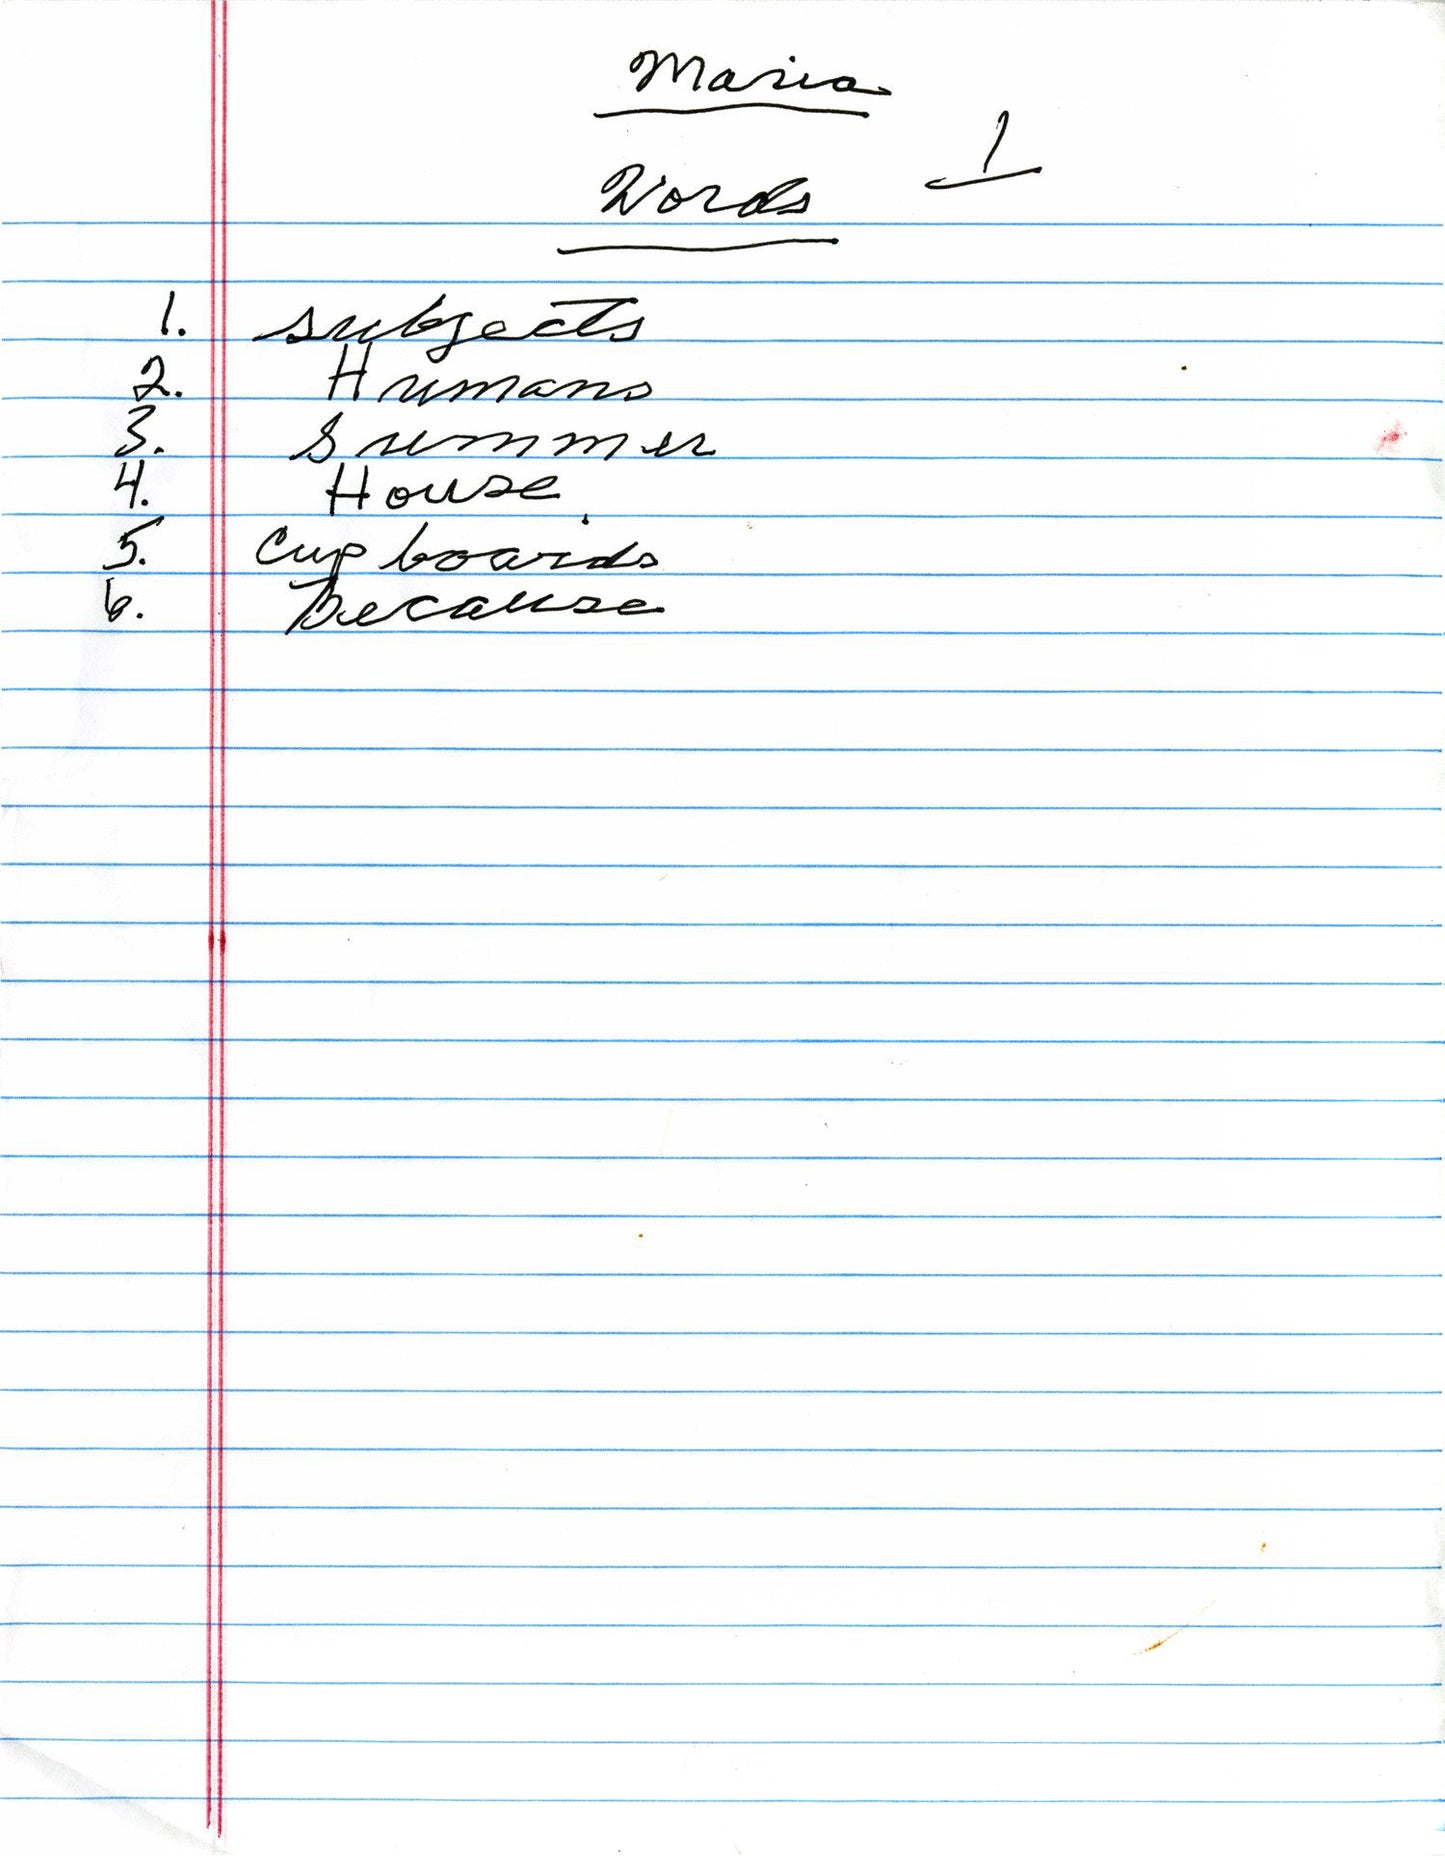 Maria
Words 1
1. subjects
2. Humans
3. Summer
4. House
5. Cupboards
6. Because